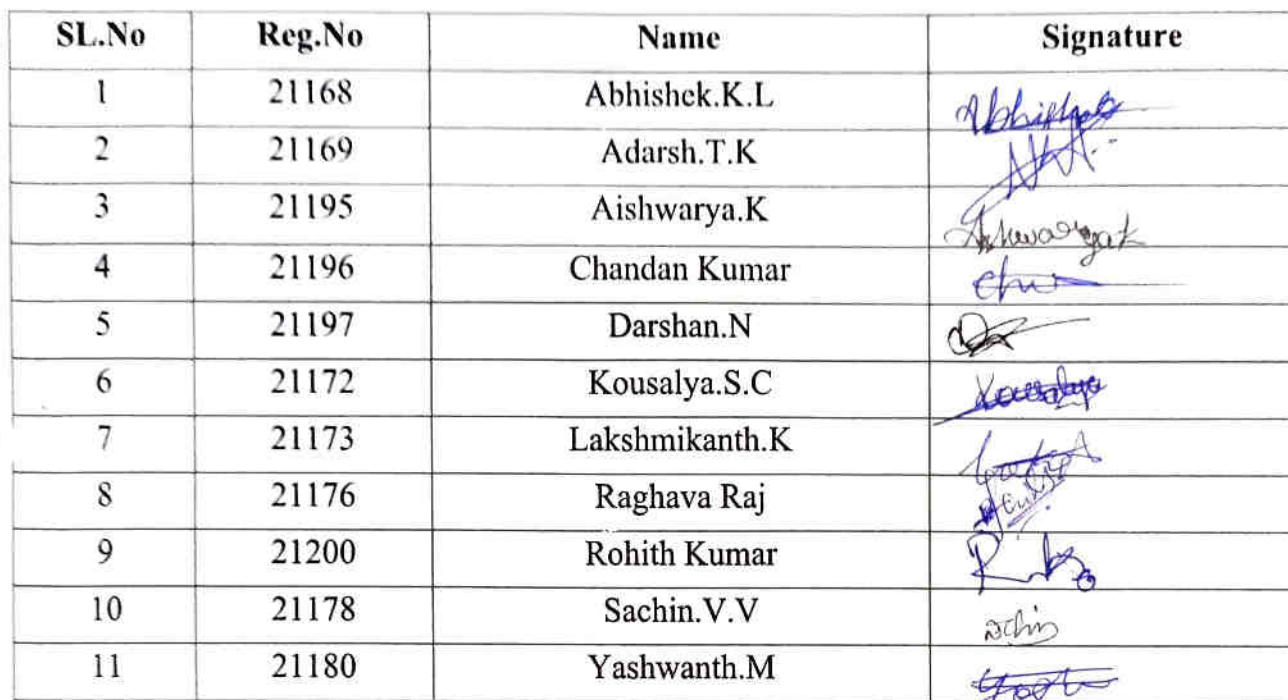 SL.No Reg.No Name Signature
1 21168 Abhishek.K.L Abhishek
2 21169 Adarsh.T.K
3 21195 Aishwarya.K
4 21196 Chandan Kumar
5 21197 Darshan.N
6 21172 Kousalya.S.C Kousalya
7 21173 Lakshmikanth.K
8 21176 Raghava Raj
9 21200 Rohith Kumar
10 21178 Sachin.V.V
11 21180 Yashwanth.M